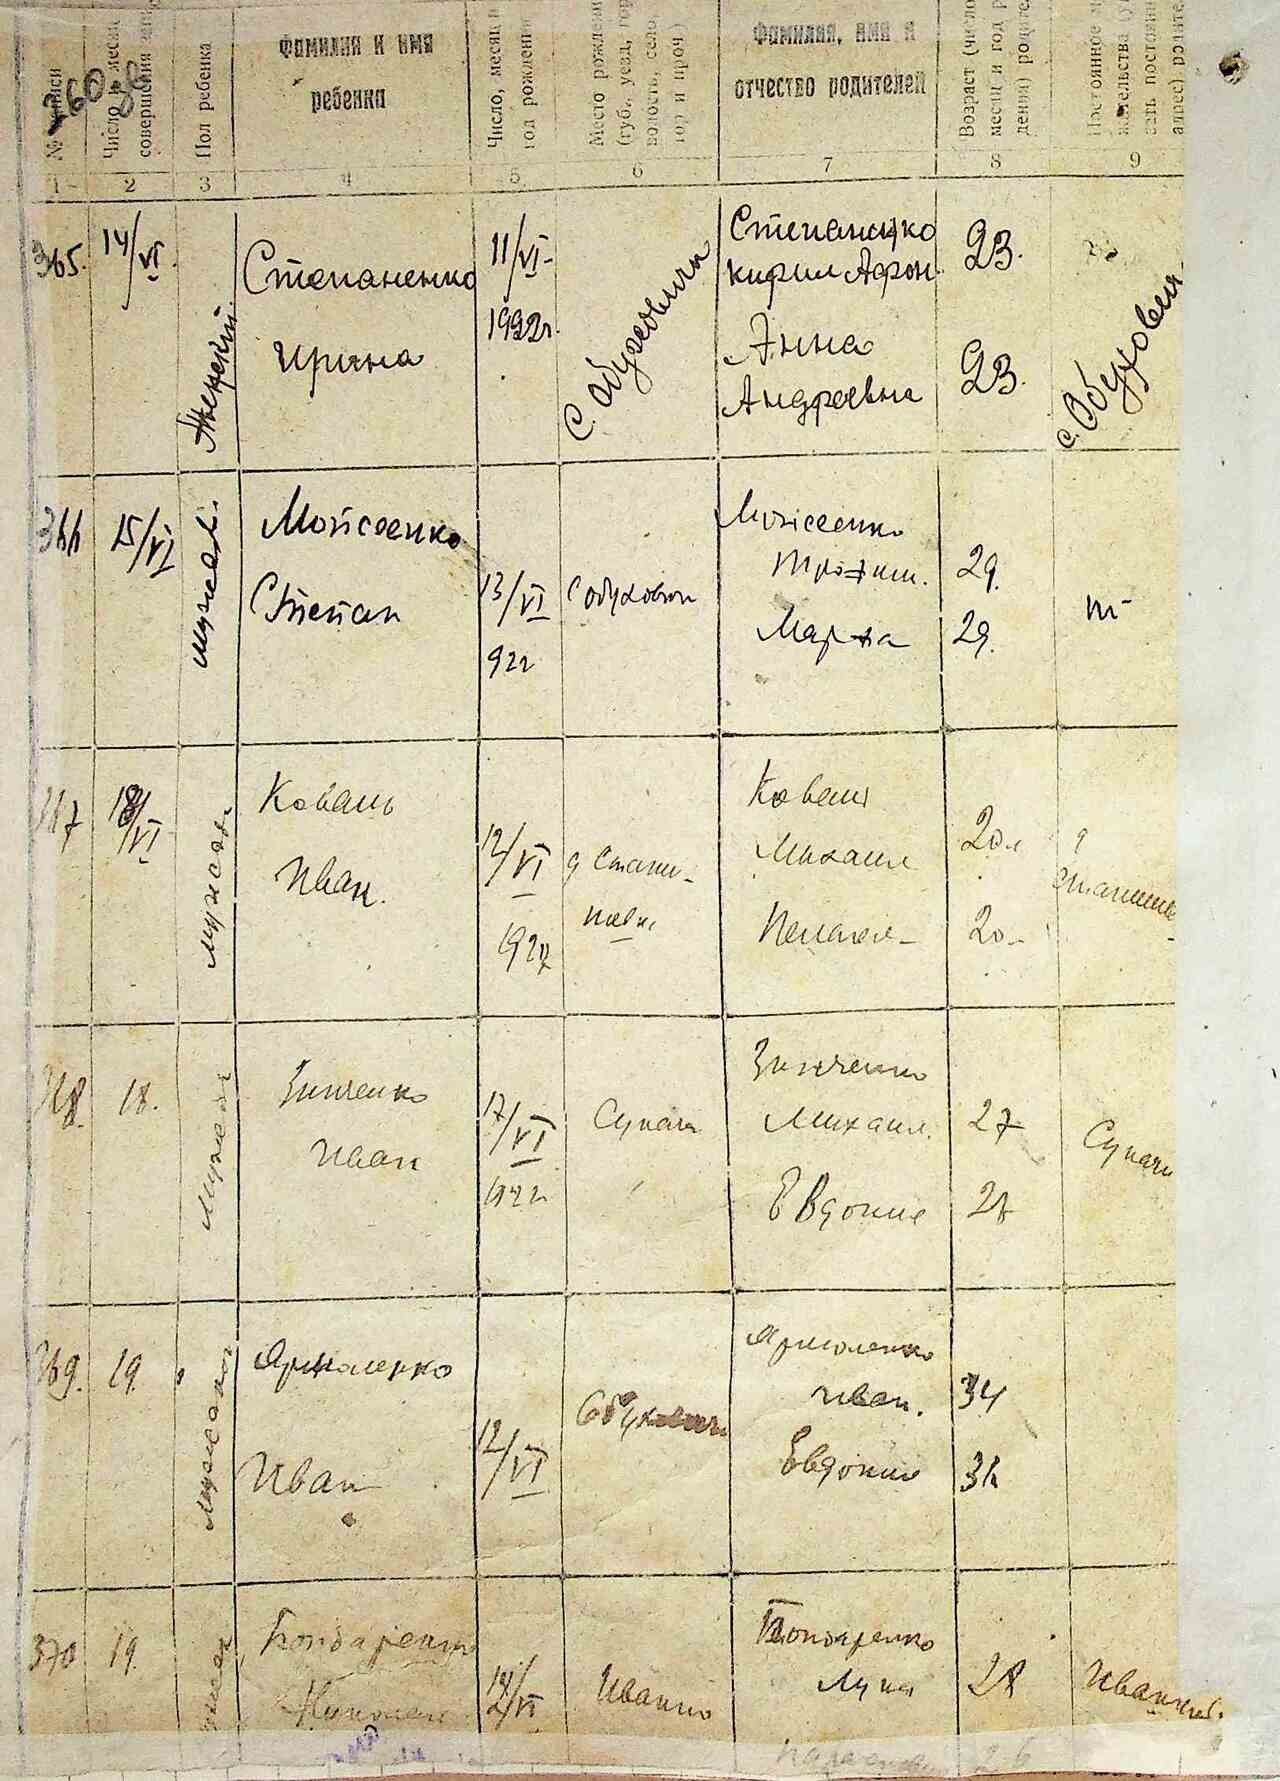 № записи
Число и месяц
совершения записи
Пол ребенка
Фамилия и имя
ребенка
Число, месяц и
год рождения
Место рождения
(губ., уезд, гор.,
волость, село,
гор и проч)
Фамилия, имя и
отчество родителей
Возраст (число,
месяц и год рож
дения) родителей
Постоянное
жительства
адрес) родителей
1 2 3 4 5 6 7 8 9
365.
14/VI.
Женский
Степаненко
Ирина
11/VI-
1922г.
с. Обуховичи
Степаненко
Кирил Афон.
Анна
Андреевна
23.
23.
с. Обухович
366
15/VI
Мужской
Мойсеенко
Степан
13/VI
922
с Обухович
Мойсеенко
Трофим.
Марфа
29.
29.
т-
367
18/VI
мужской
Коваль
Иван.
12/VI
1922
д Стани-
шовка
Коваль
Михаил
Пелагея
20л
20
д
Станише
368.
18.
Мужской
Зинченко
Иван
17/VI
1922
Сукачи
Зинченко
Михаил.
Евдокия
27
Сукачи
369.
19.
мужской
Ярмоленко
Иван
12/VI
Обуховичи
Ярмоленко
Иван.
Евдокия
34
370
19.
Бондаренко
Николай
Бондаренко
Лука
28
26